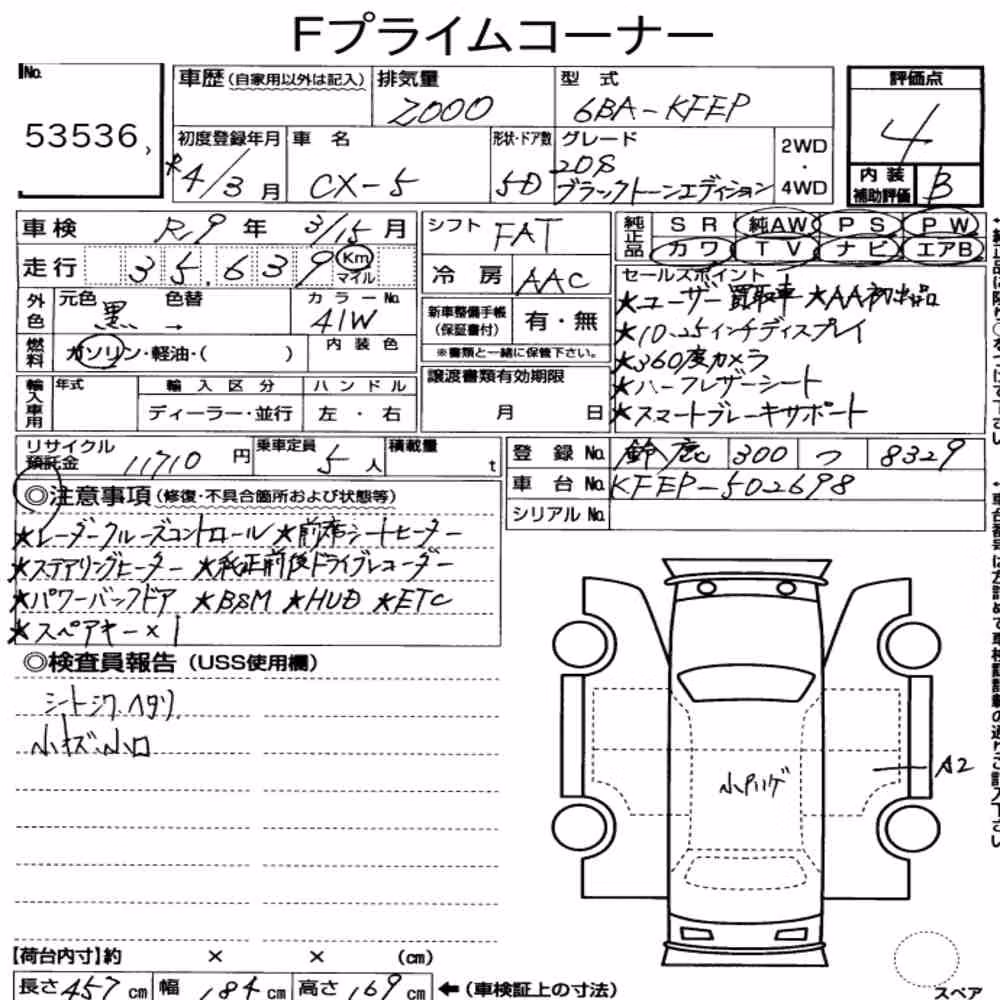 Fプライムコーナー
No.
53536
車歴(自家用以外は記入)
排気量
2000
型式
6BA-KFEP
評価点
4
初度登録年月
*4/3月
車名
CX-5
形状・ドア数
5D
グレード
20S
ブラックトーンエディション
2WD
・
4WD
内装
補助評価
B
車検
R.9年3/15月
走行
35,639
Km
マイル
外色
元色
黒
→
色替
カラーNo.
41W
燃料
ガソリン・軽油・( )
内装色
輸入車用
年式
輸入区分
ディーラー・並行
ハンドル
左・右
シフト
FAT
冷房
AAC
新車整備手帳
(保証書付)
有・無
※書類と一緒に保管下さい。
譲渡書類有効期限
月 日
純正品
SR
純AW
PS
PW
カワ
TV
ナビ
エアB
セールスポイント
★ユーザー買取車 ★AA初出品
★10.25インチディスプレイ
★360度カメラ
★ハーフレザーシート
★スマートブレーキサポート
リサイクル
預託金
11710円
乗車定員
5人
積載量
t
登録No.
鈴鹿 300 つ 8329
車台No.
KFEP-502698
シリアルNo.
◎注意事項(修復・不具合箇所および状態等)
★レーダークルーズコントロール ★前席シートヒーター
★ステアリングヒーター ★純正前後ドライブレコーダー
★パワーバックドア ★BSM ★HUD ★ETC
★スペアキー×1
◎検査員報告(USS使用欄)
シートシワ.ヘタリ.
小キズ.小凹
小Pハゲ
A2
【荷台内寸】約 × × (cm)
長さ457cm
幅184cm
高さ169cm
←(車検証上の寸法)
スペア